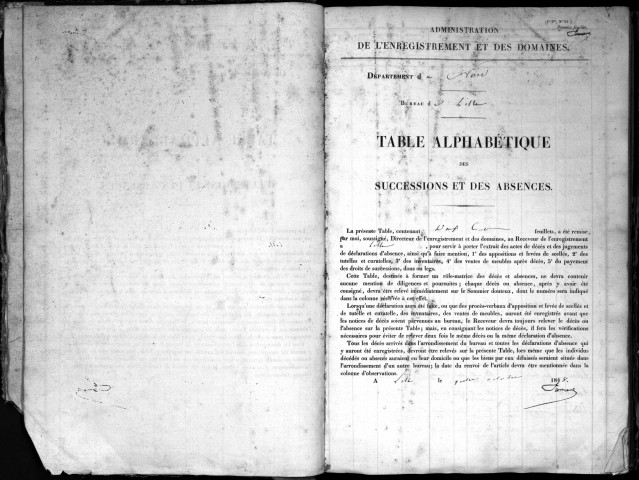 ADMINISTRATION
DE L'ENREGISTREMENT ET DES DOMAINES.
DÉPARTEMENT d Nord
BUREAU d Lille
TABLE ALPHABÉTIQUE
DES
SUCCESSIONS ET DES ABSENCES.
La présente Table, contenant feuillets, a été remise,
par moi, soussigné, Directeur de l'enregistrement et des domaines, au Receveur de l'enregistrement
à Lille, pour servir à porter l'extrait des actes de décès et des jugements
de déclarations d'absence, ainsi qu'à faire mention, 1° des appositions et levées de scellés, 2° des
tutelles et curatelles, 3° des inventaires, 4° des ventes de meubles après décès, 5° du payement
des droits de successions, dons ou legs.
Cette Table, destinée à former un rôle-matrice des décès et absences, ne devra contenir
aucune mention de diligences et poursuites; chaque décès ou absence, après y avoir été
consigné, devra être relevé immédiatement sur le Sommier douteux, dont le numéro sera indiqué
dans la colonne réservée à cet effet.
Lorsqu'une déclaration aura été faite, ou que des procès-verbaux d'apposition et levée de scellés et
de tutelle et curatelle, des inventaires, des ventes de meubles, auront été enregistrés avant que
les notices de décès soient parvenues au bureau, le Receveur devra toujours relever le décès ou
l'absence sur la présente Table; mais, en consignant les notices de décès, il fera les vérifications
nécessaires pour éviter de relever deux fois le même décès ou la même déclaration d'absence.
Tous les décès arrivés dans l'arrondissement du bureau et toutes les déclarations d'absence qui
y auront été enregistrées, devront être relevés sur la présente Table, lors même que les individus
décédés ou absents auraient eu leur domicile ou que les biens par eux délaissés seraient situés dans
l'arrondissement d'un autre bureau; la date du renvoi de l'article devra être mentionnée dans la
colonne d'observations.
A Lille le octobre 18